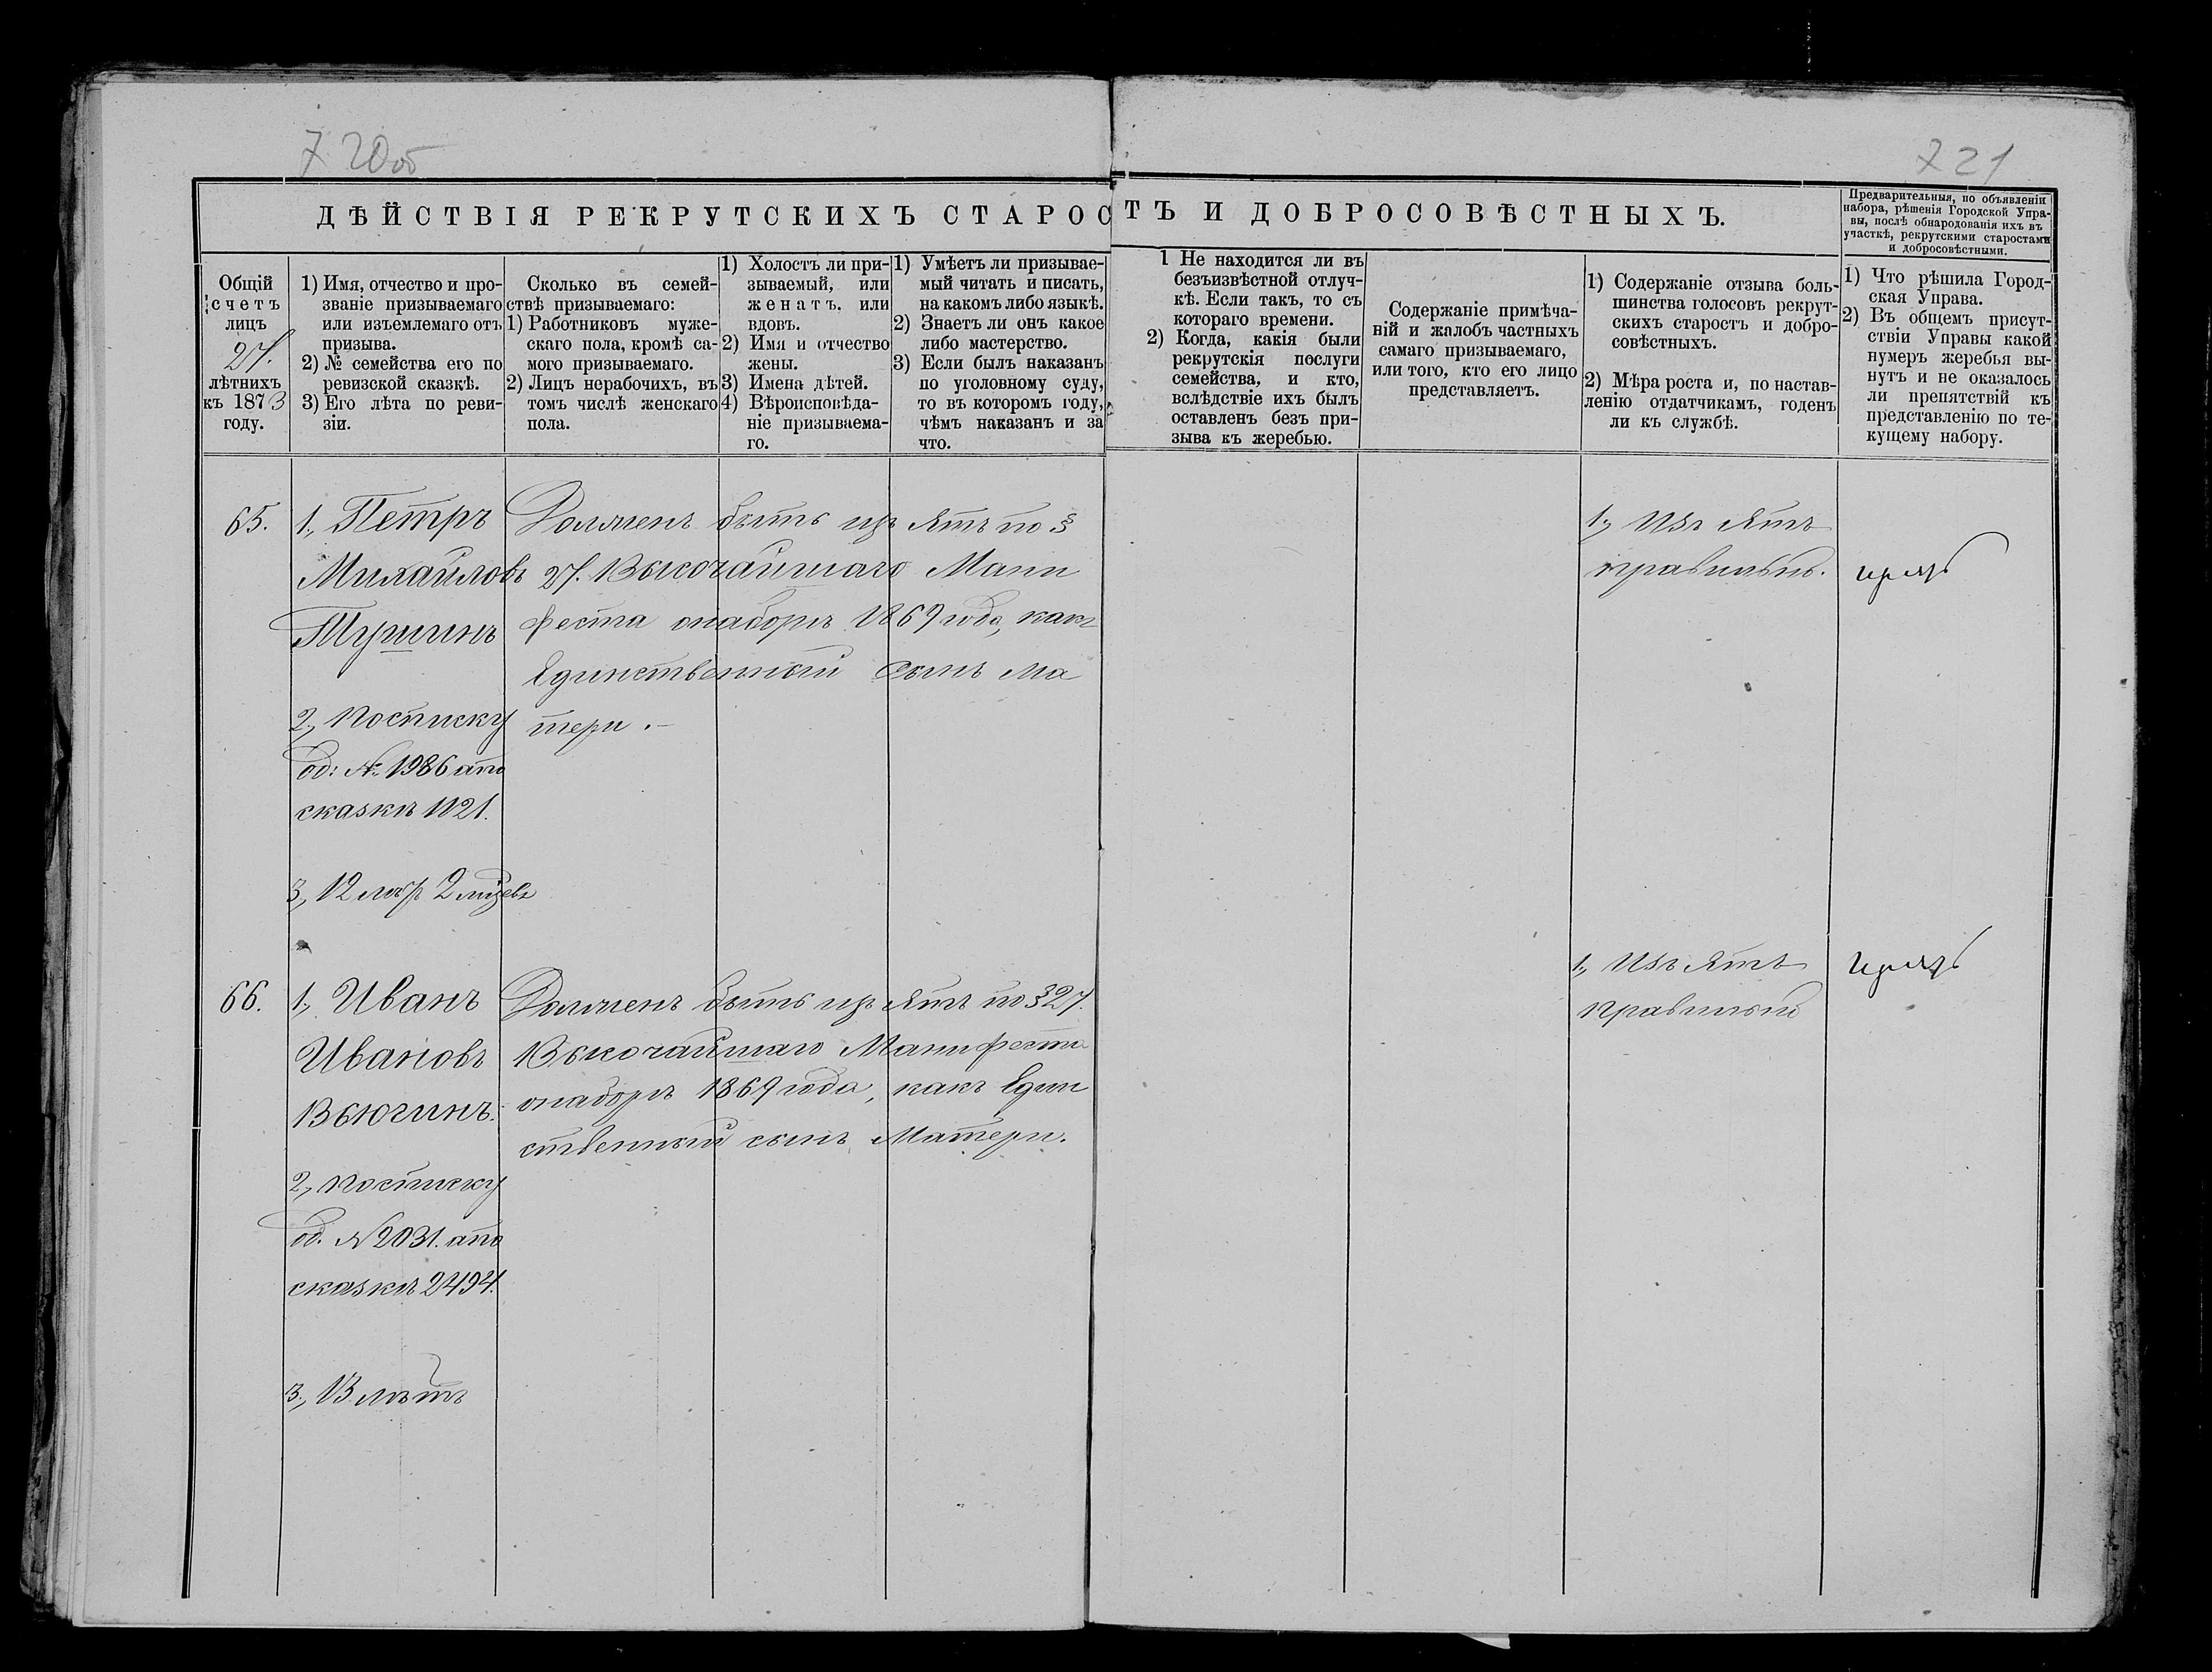 720об
721
ДѢЙСТВІЯ РЕКРУТСКИХЪ СТАРОСТЪ И ДОБРОСОВѢСТНЫХЪ.
Предварительныя, по объявленіи
набора, рѣшенія Городской Упра-
вы, послѣ обнародованія ихъ въ
участкѣ, рекрутскими старостами
и добросовѣстными.
Общій
счетъ
лицъ
27.
лѣтнихъ
къ 1873
году.
1) Имя, отчество и про-
званіе призываемаго
или изъемлемаго отъ
призыва.
2) № семейства его по
ревизской сказкѣ.
3) Его лѣта по реви-
зіи.
Сколько въ семей-
ствѣ призываемаго:
1) Работниковъ муже-
скаго пола, кромѣ са-
мого призываемаго.
2) Лицъ нерабочихъ, въ
томъ числѣ женскаго
пола.
1) Холостъ ли при-
зываемый, или
женатъ. или
вдовъ.
2) Имя и отчество
жены.
3) Имена дѣтей.
4) Вѣроисповѣда-
ніе призываема-
го.
1) Умѣетъ ли призывае-
мый читать и писать,
на какомъ либо языкѣ.
2) Знаетъ ли онъ какое
либо мастерство.
3) Если былъ наказанъ
по уголовному суду,
то въ которомъ году,
чѣмъ наказанъ и за
что.
1 Не находится ли въ
безъизвѣстной отлуч-
кѣ. Если такъ, то съ
котораго времени.
2) Когда, какія были
рекрутскія послуги
семейства, и кто,
вслѣдствіе ихъ былъ
оставленъ безъ при-
зыва къ жеребью.
Содержаніе примѣча-
ній и жалобъ частныхъ
самаго призываемаго,
или того, кто его лицо
представляетъ.
1) Содержаніе отзыва боль-
шинства голосовъ рекрут-
скихъ старостъ и добро-
совѣстныхъ.
2) Мѣра роста и, по настав-
ленію отдатчикамъ, годенъ
ли къ службѣ.
1) Что рѣшила Город-
ская Управа.
2) Въ общемъ присут-
ствіи Управы какой
нумеръ жеребья вы-
нутъ и не оказалось
ли препятствій къ
представленію по те-
кущему набору.
65.
1., Петръ
Михайловъ
Тушинъ
2., по списку
об: № 1986 а по
сказкѣ 1821.
3., 12 лѣт 2 мцевъ
Долженъ быть изъятъ по §
27. Высочайшаго Мани
феста о наборѣ 1869 года, какъ
Единственный Сынъ Ма
тери. –
1., Изъятъ
правильно.
66.
1., Иванъ
Ивановъ
Вьюгинъ.
2., по списку
об. № 2031. а по
сказкѣ 2494.
3., 13 лѣтъ
Долженъ быть изъятъ по § 27.
Высочайшаго Манифеста
о наборѣ 1869 года, какъ Един
ственный сынъ Матери.
1., Изъятъ
правильно